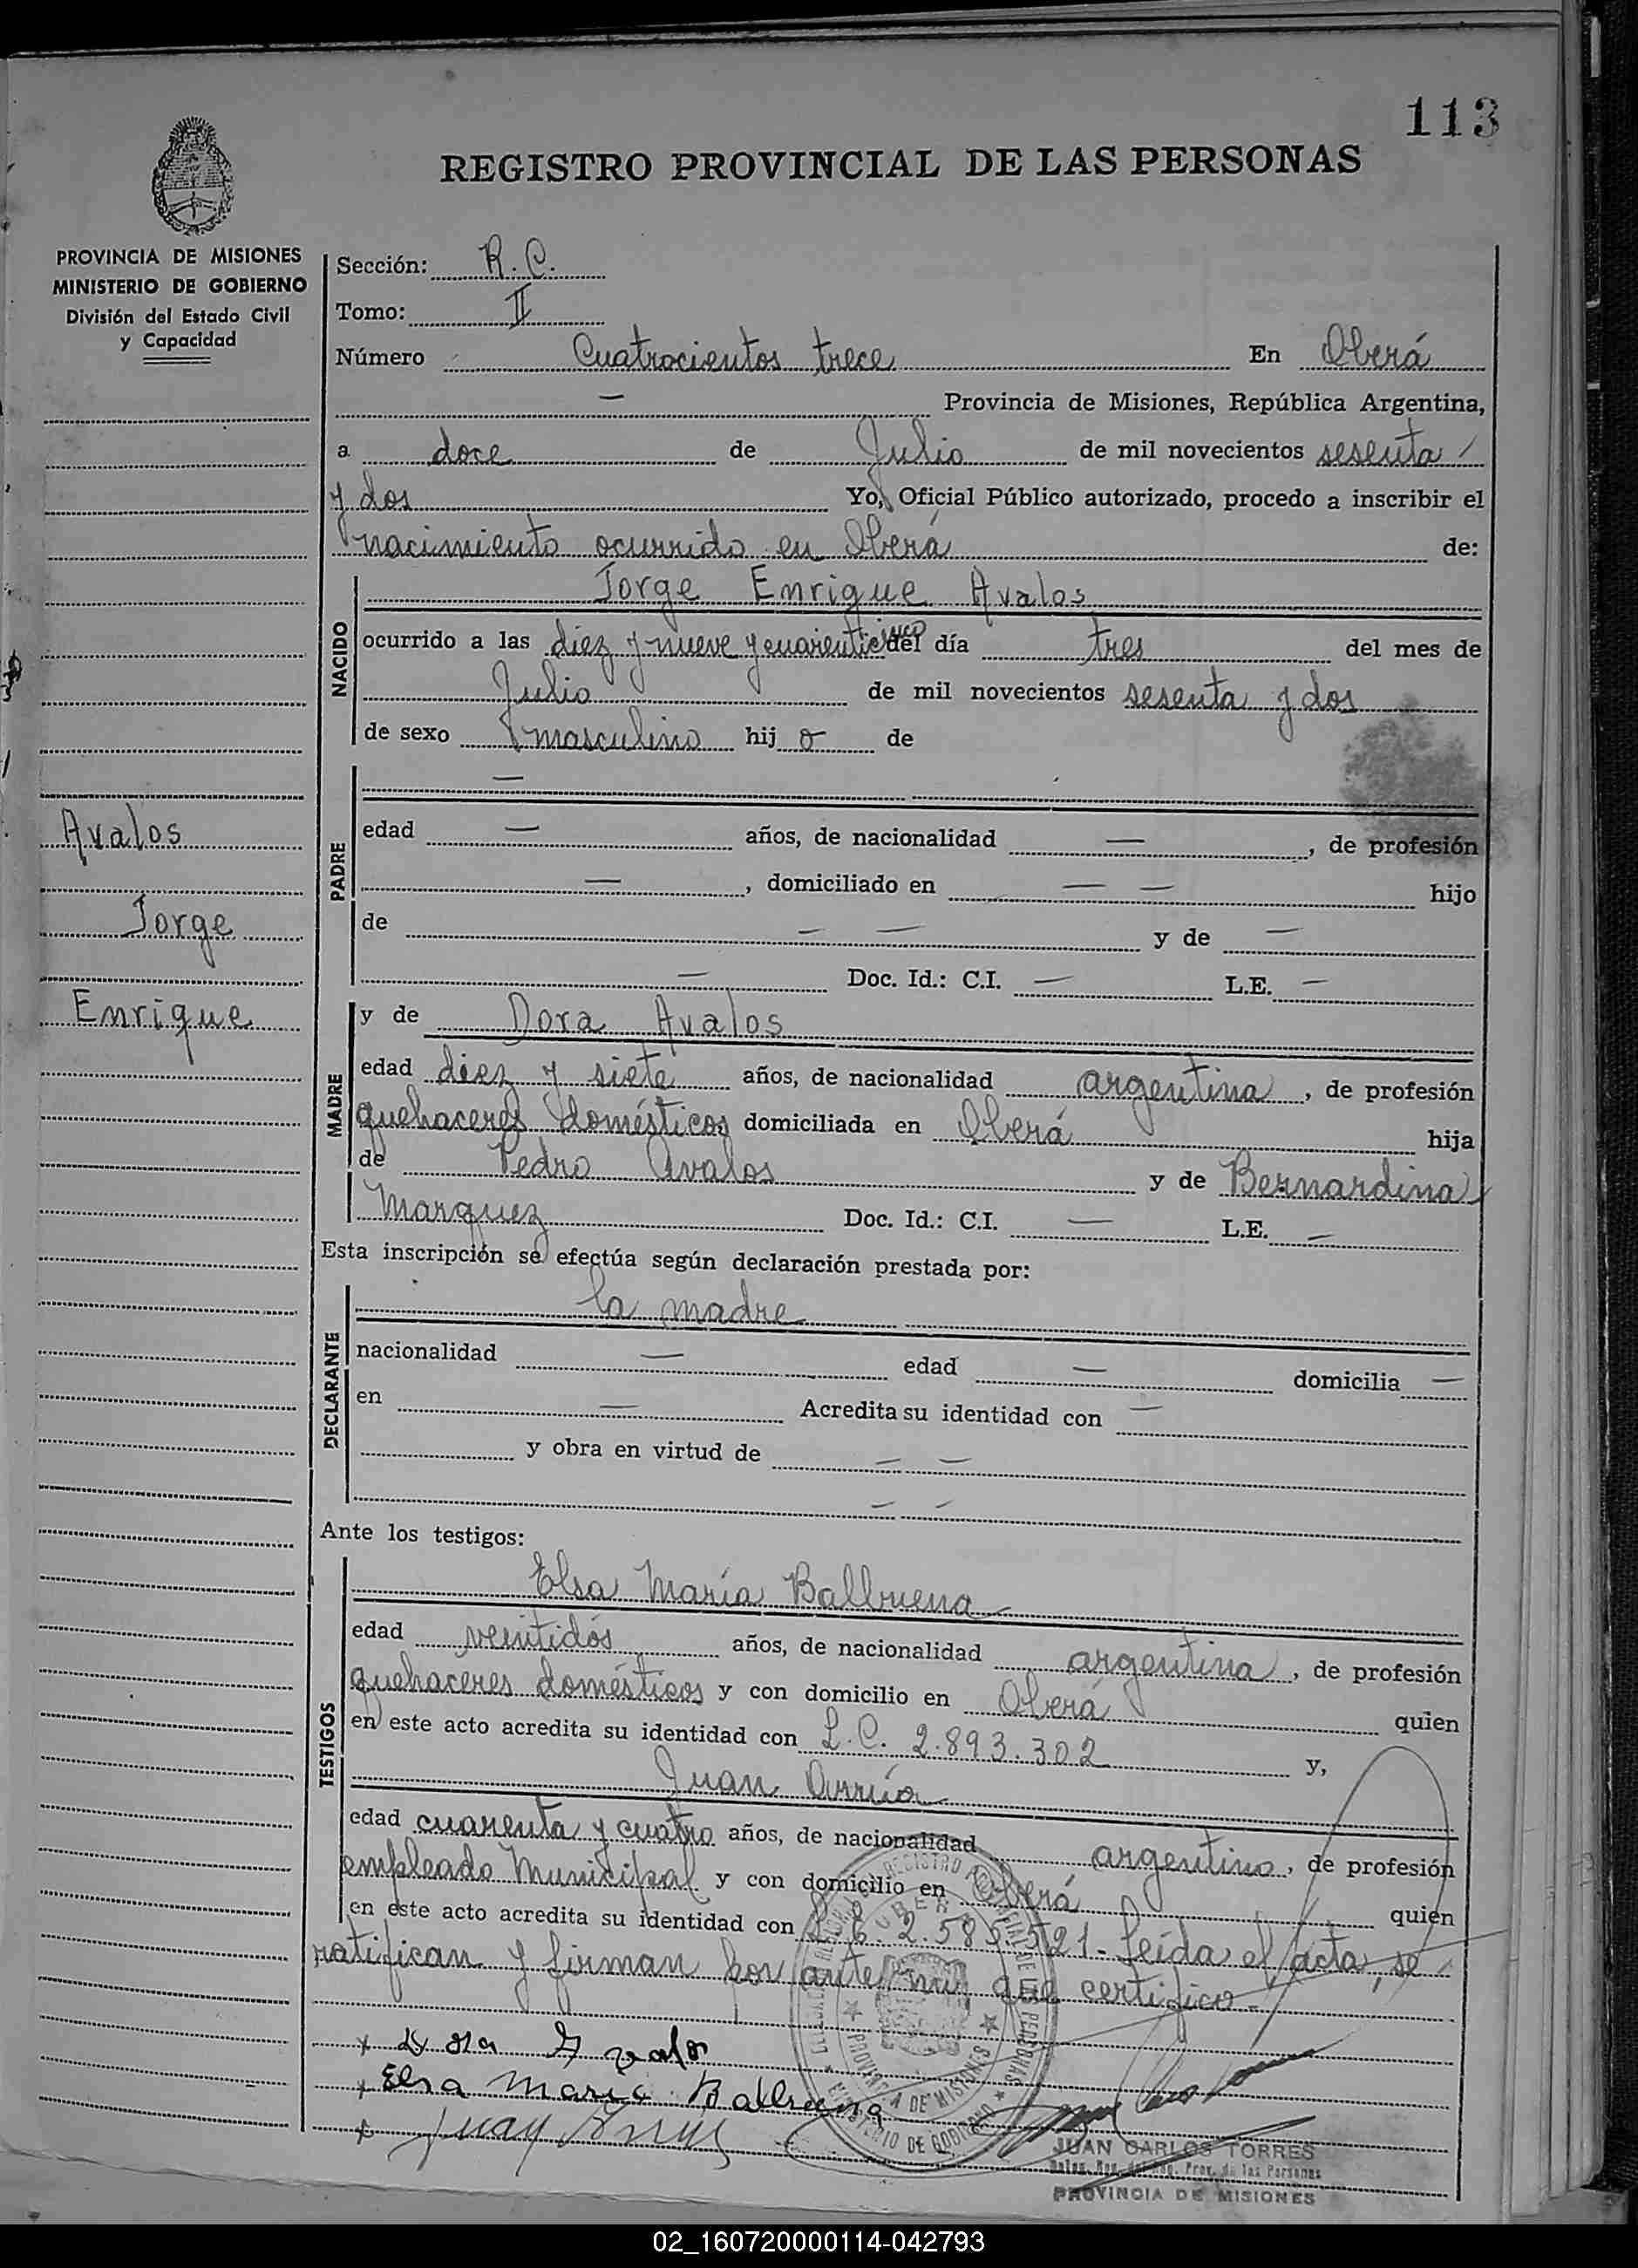 113
REGISTRO PROVINCIAL DE LAS PERSONAS
PROVINCIA DE MISIONES
MINISTERIO DE GOBIERNO
División del Estado Civil
y Capacidad
Sección: R. C.
Tomo: II
Número Cuatrocientos trece En Oberá
— Provincia de Misiones, República Argentina,
a doce de Julio de mil novecientos sesenta
y dos Yo, Oficial Público autorizado, procedo a inscribir el
nacimiento ocurrido en Oberá de:
NACIDO
Jorge Enrique Avalos
ocurrido a las diez y nueve y cuarenticinco del día tres del mes de
Julio de mil novecientos sesenta y dos
de sexo masculino hij o de
PADRE
—
edad — años, de nacionalidad —, de profesión
—, domiciliado en — — hijo
de — — y de —
— Doc. Id.: C.I. — L.E. —
Avalos
Jorge
Enrique
MADRE
y de Dora Avalos
edad diez y siete años, de nacionalidad argentina, de profesión
quehaceres domésticos domiciliada en Oberá hija
de Pedro Avalos y de Bernardina
Marquez Doc. Id.: C.I. — L.E. —
Esta inscripción se efectúa según declaración prestada por:
DECLARANTE
la madre
nacionalidad — edad — domicilia —
en — Acredita su identidad con —
y obra en virtud de — —
— —
Ante los testigos:
TESTIGOS
Elsa María Balbuena
edad veintidós años, de nacionalidad argentina, de profesión
quehaceres domésticos y con domicilio en Oberá quien
en este acto acredita su identidad con L.C. 2.893.302 y,
Juan
edad cuarenta y cuatro años, de nacionalidad argentino, de profesión
empleado Municipal y con domicilio en Oberá quien
en este acto acredita su identidad con 2.585.521 - Leída el acta, se
ratifican y firman por ante mi que certifico -
x Dora Avalos
x Elsa Maria Balbuena
x Juan
PROVINCIA DE MISIONES
MINISTERIO DE GOBIERNO
JUAN CARLOS TORRES
Prov. de las Personas
PROVINCIA DE MISIONES
02_160720000114-042793